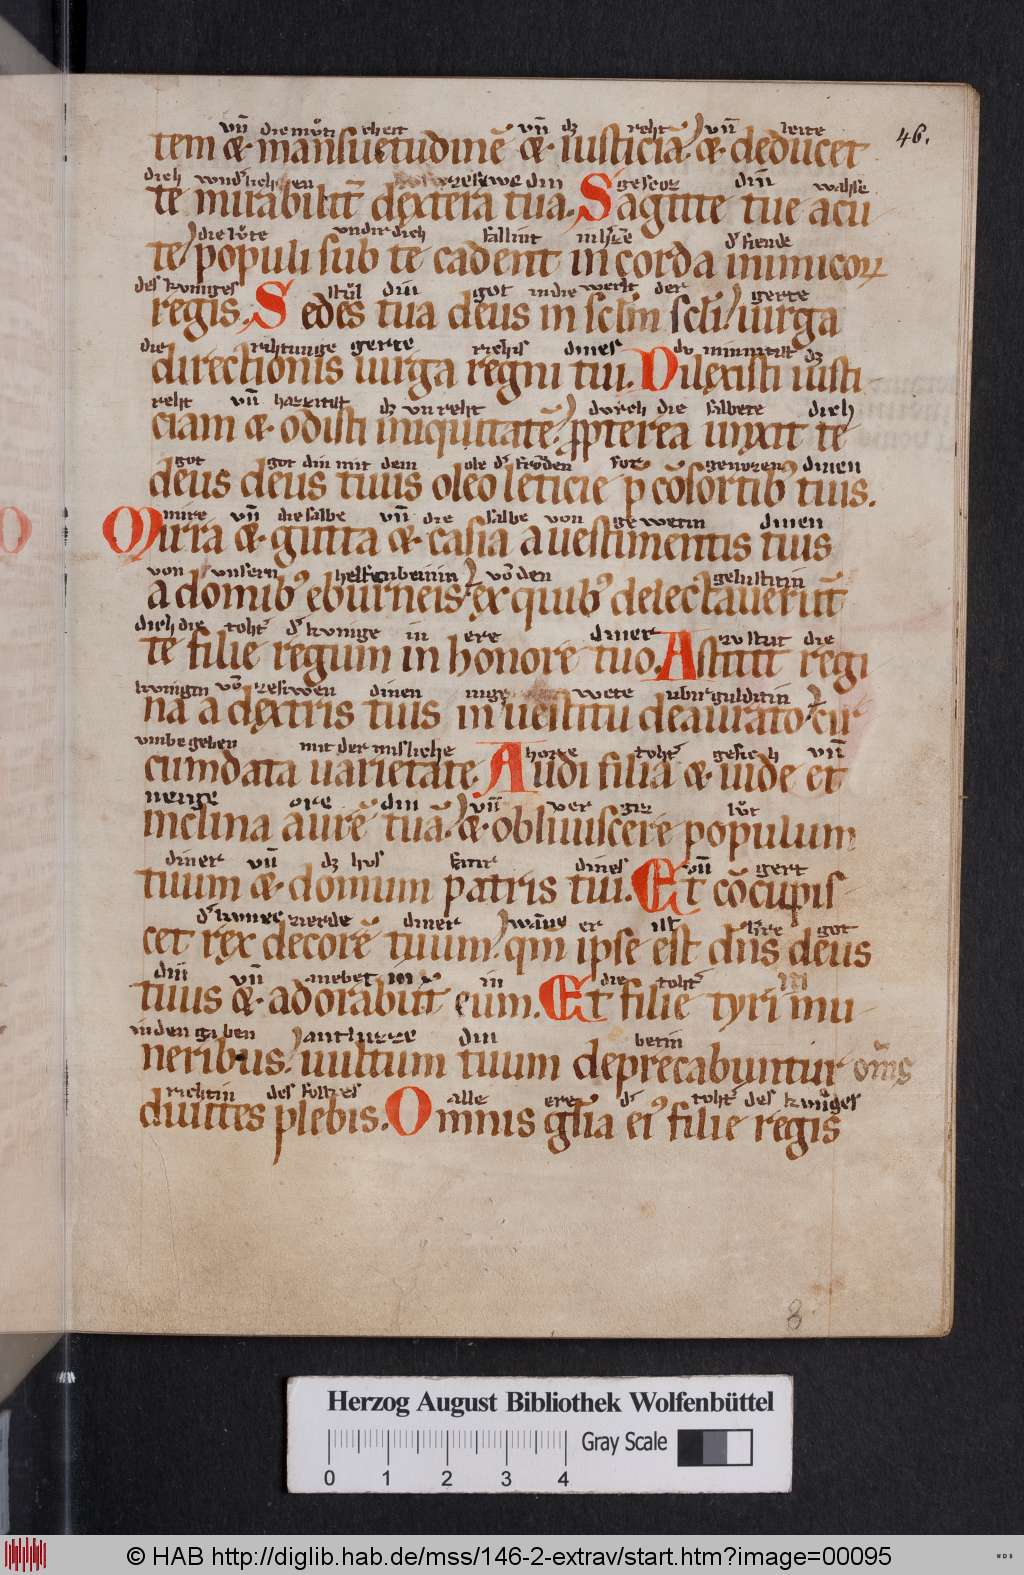 vn̄ die mv̊ti cheit vn̄ dʒ reht vn̄ leite
tem &· mansuetudinē &· iusticiā· &· deducet
46.
dich diū
te mirabilit̄ dextera tua. Sagitte tue acu
die lv̊te vndir dich vallint
te· populi sub te cadent in corda inimicoꝝ
des kuniges stůl din got in die werlt der gerte
regis. Sedes tua deus in sc̄lm sc̄li· uirga
die rihtunge gerte richis dines dv minnitist dʒ
directionis uirga regni tui. Dilexisti iusti
reht vn̄ hazzitist dʒ vnreht durch die salbete dich
ciam &· odisti iniquitatē· ꝓpterea unxit te
got got din mit dem ole dinen
deus deus tuus oleo leticie p̄ cōsortib' tuis.
mirre vn̄ die salbe vn̄ die salbe von gewetin dinen
Mirra &· gutta &· casia a uestimentis tuis
von vnsern helfenbeinin gelustitin
a domib' eburneis· ex quib' delectauerūt
dich die toht' d' kunige in ere diner die
te filie regum in honore tuo. Astitit regi
kunigin dinen wete ubirgulditin
na a dextris tuis in uestitu deaurato· cir
vmbegeben mit der misliche hore toht' gesich vn̄
cumdata uarietate. Audi filia &· uide et
neige ore din vn̄ ver giz lv̊t
inclina aurē tuā· &· obliuiscere populum
diner vn̄ dʒ hus dines vn̄ gert
tuum &· domum patris tui. Et cōcupis
zierde diner er ist got
cet rex decorē tuum· qm̄ ipse est dn̄s deus
din vn̄ in die toht'
tuus &· adorabūt eum. Et filie tyri mu
in den gaben antluzze din betin
neribus· uultum tuum deprecabuntur om̄s
richtin des folkes alle ere d' toht' des kuniges
diuites plebis. Omnis gl̄ia ei' filie regis
8
Herzog August Bibliothek Wolfenbüttel
Gray Scale
0 1 2 3 4
© HAB http://diglib.hab.de/mss/146-2-extrav/start.htm?image=00095